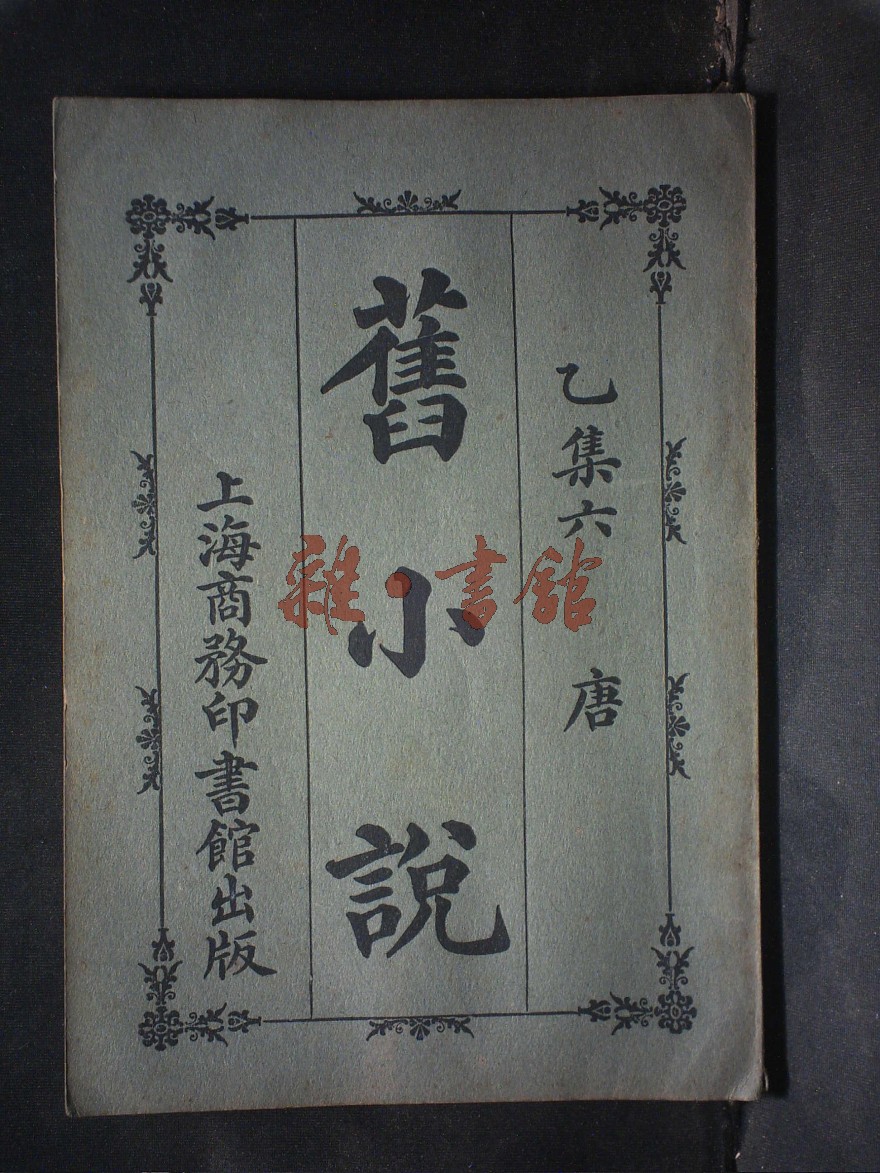 乙集六 唐
舊小說
上海商務印書館出版
雜·書館